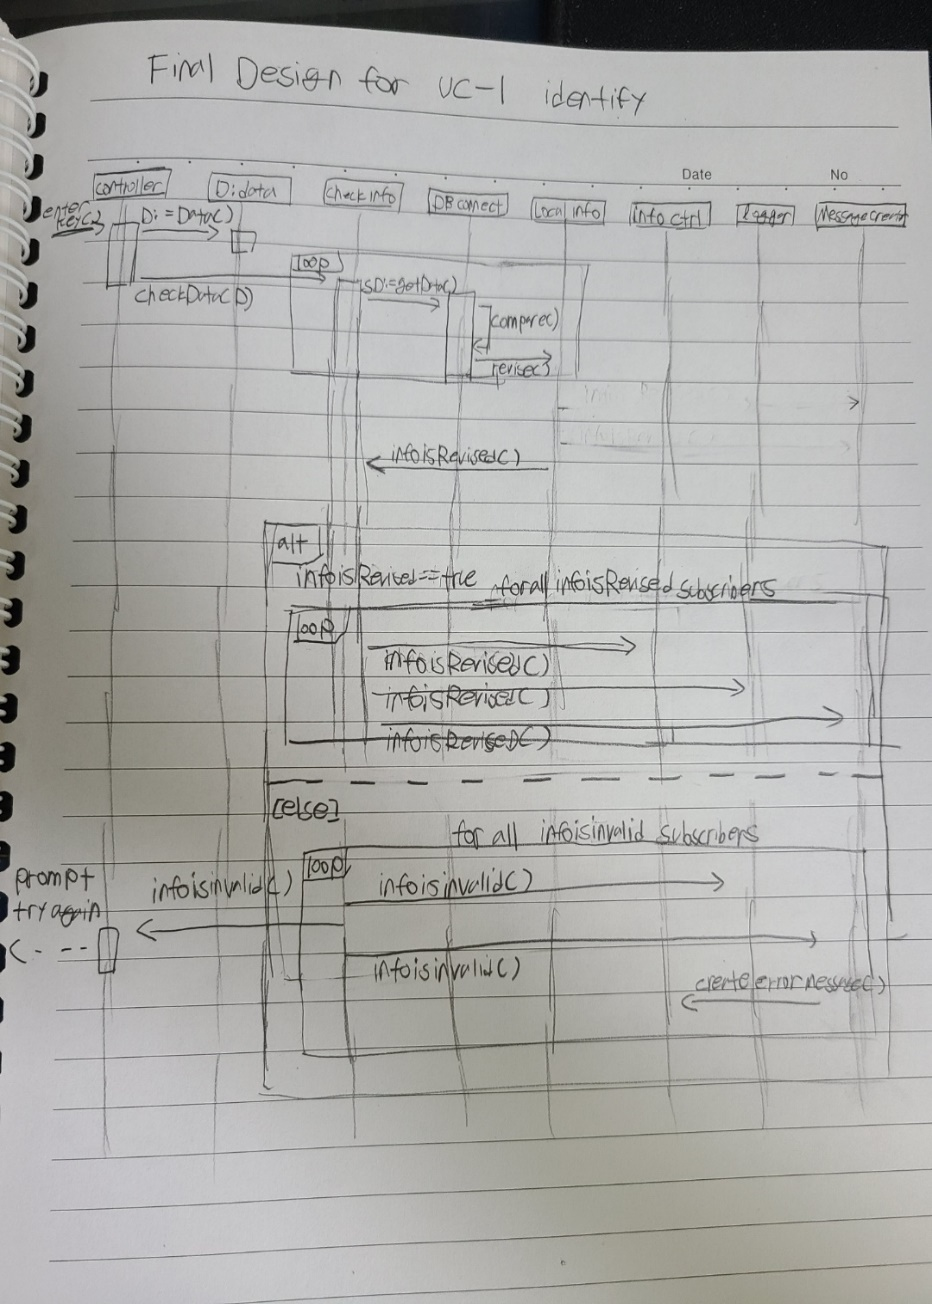 Final Design for UC-1 identify
Date
No
controller
Di:data
checkinfo
DBconnect
Local info
info ctrl
logger
enter
key()
Di=Data()
checkData(D)
loop
sDi=getData()
compare()
revise()
infoisRevised()
alt
infoisRevised==true
for all infoisRevised subscribers
loop
infoisRevised()
infoisRevised()
infoisRevised()
[else]
for all infoisinvalid subscribers
loop
prompt
try again
infoisinvalid()
infoisinvalid()
infoisinvalid()
create error message()